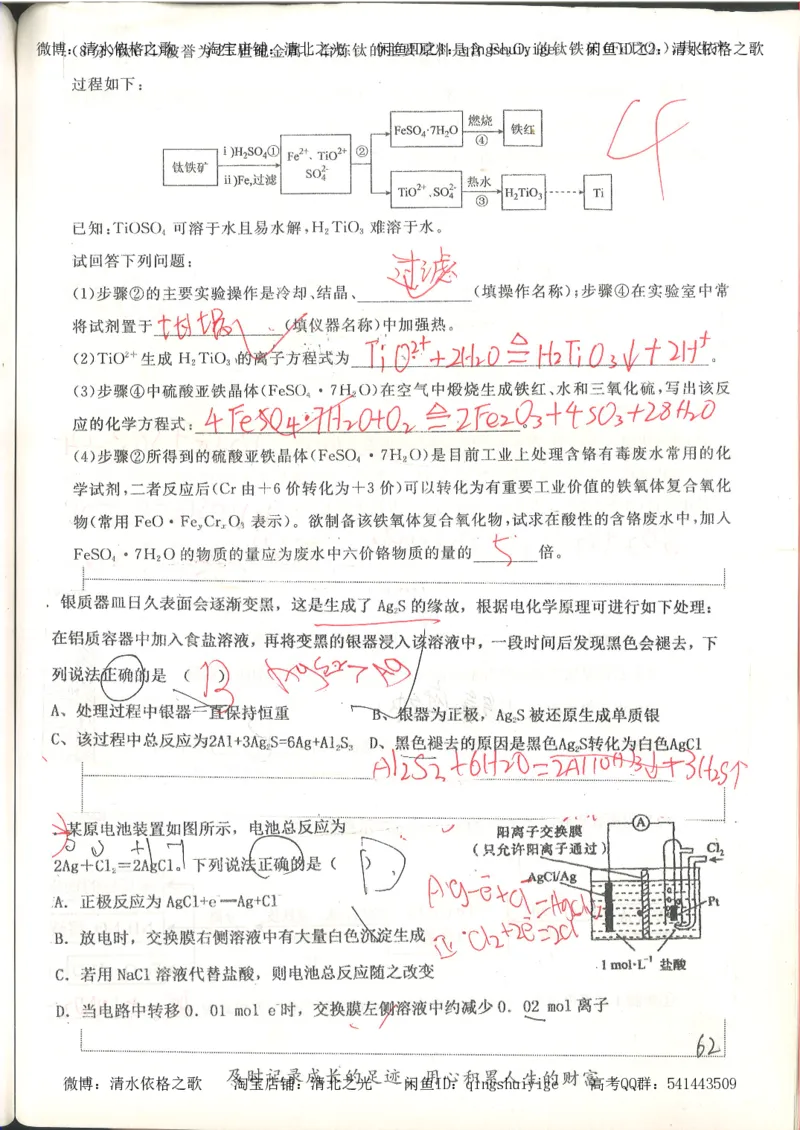 微博：清水依格之歌 淘宝店铺：清北之光 闲鱼ID：qingshuiyige 闲鱼ID 2：清水依格之歌
过程如下：
燃烧
FeSO₄·7H₂O 铁红
④
ⅰ)H₂SO₄① Fe²⁺、TiO²⁺ ②
钛铁矿 SO₄²⁻
ⅱ)Fe,过滤
热水
TiO²⁺、SO₄²⁻ H₂TiO₃ Ti
③
4
已知:TiOSO₄ 可溶于水且易水解,H₂TiO₃ 难溶于水。
试回答下列问题:
(1)步骤②的主要实验操作是冷却、结晶、过滤(填操作名称);步骤④在实验室中常
将试剂置于坩埚(填仪器名称)中加强热。
(2)TiO²⁺生成 H₂TiO₃ 的离子方程式为 TiO²⁺+2H₂O≜H₂TiO₃↓+2H⁺。
(3)步骤④中硫酸亚铁晶体(FeSO₄·7H₂O)在空气中煅烧生成铁红、水和三氧化硫,写出该反
应的化学方程式: 4FeSO₄·7H₂O+O₂≜2Fe₂O₃+4SO₃+28H₂O。
(4)步骤②所得到的硫酸亚铁晶体(FeSO₄·7H₂O)是目前工业上处理含铬有毒废水常用的化
学试剂,二者反应后(Cr由+6价转化为+3价)可以转化为有重要工业价值的铁氧体复合氧化
物(常用 FeO·FeᵧCrₓO₃ 表示)。欲制备该铁氧体复合氧化物,试求在酸性的含铬废水中,加入
FeSO₄·7H₂O的物质的量应为废水中六价铬物质的量的 5 倍。
银质器皿日久表面会逐渐变黑，这是生成了 Ag₂S 的缘故，根据电化学原理可进行如下处理：
在铝质容器中加入食盐溶液，再将变黑的银器浸入该溶液中，一段时间后发现黑色会褪去，下
列说法正确的是（ B ）
A、处理过程中银器一直保持恒重 B、银器为正极，Ag₂S 被还原生成单质银
C、该过程中总反应为2Al+3Ag₂S=6Ag+Al₂S₃ D、黑色褪去的原因是黑色Ag₂S转化为白色AgCl
Al₂S₃+6H₂O=2Al(OH)₃↓+3H₂S↑
某原电池装置如图所示，电池总反应为
0 0 +1 -1
2Ag+Cl₂=2AgCl。下列说法正确的是（ D
A. 正极反应为 AgCl+e⁻=Ag+Cl⁻
B. 放电时，交换膜右侧溶液中有大量白色沉淀生成
C. 若用 NaCl 溶液代替盐酸，则电池总反应随之改变
D. 当电路中转移 0. 01 mol e⁻时，交换膜左侧溶液中约减少 0. 02 mol 离子
阳离子交换膜
（只允许阳离子通过）
A
Cl₂
AgCl/Ag
Pt
1 mol·L⁻¹ 盐酸
Ag-e⁻+Cl⁻=AgCl
正:Cl₂+2e⁻=2Cl⁻
62
及时记录成长的足迹 用心积累人生的财富
微博：清水依格之歌 淘宝店铺：清北之光 闲鱼ID：qingshuiyige 高考QQ群：541443509